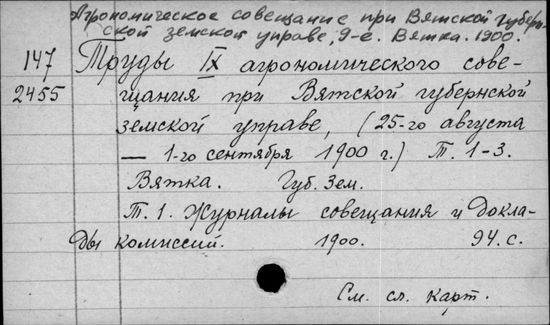 Агрономическое совещание при Вятской губерн-
ской земской управе, 9-е. Вятка. 1900.
147 Труды IX агрономического сове-
2455 щания при Вятской губернской
земской управе, (25-го августа
— 1-го сентября 1900 г.) Т. 1-3.
Вятка. Губ. Зем.
Т. 1. Журналы совещания и докла-
ды комиссий. 1900. 94 с.
См. сл. карт.